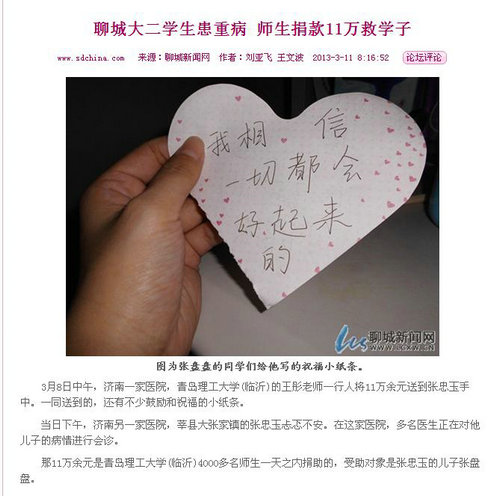 聊城大二学生患重病 师生捐款11万救学子
www.sdchina.com 来源：聊城新闻网 作者：刘亚飞 王文波 2013-3-11 8:16:52 论坛评论
我相信
一切都会
好起来
的
聊城新闻网
WWW.LCXW.CN
图为张盘盘的同学们给他写的祝福小纸条。
3月8日中午，济南一家医院，青岛理工大学(临沂)的王彤老师一行人将11万余元送到张忠玉手
中。一同送到的，还有不少鼓励和祝福的小纸条。
当日下午，济南另一家医院，莘县大张家镇的张忠玉忐忑不安。在这家医院，多名医生正在对他
儿子的病情进行会诊。
那11万余元是青岛理工大学(临沂)4000多名师生一天之内捐助的，受助对象是张忠玉的儿子张盘
盘。